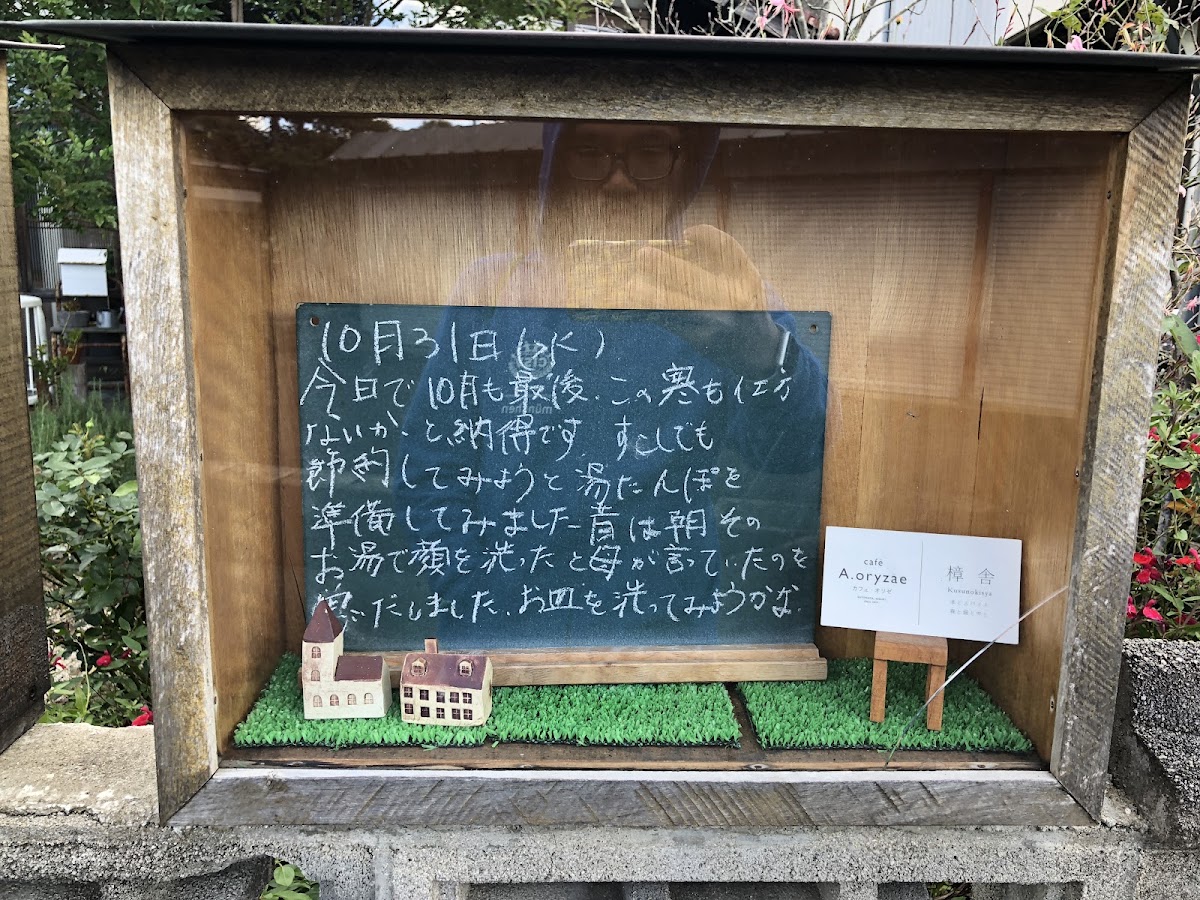 10月31日(水)
今日で10月も最後.この寒も仕方
ないか、と納得です.すこしでも
節約してみようと湯たんぽを
準備してみました昔は朝その
お湯で顔を洗ったと母が言っていたのを
思いだしました.お皿を洗ってみようかな.
münchen
café
A.oryzae
カフェ オリゼ
樟舎
Kusunokisya